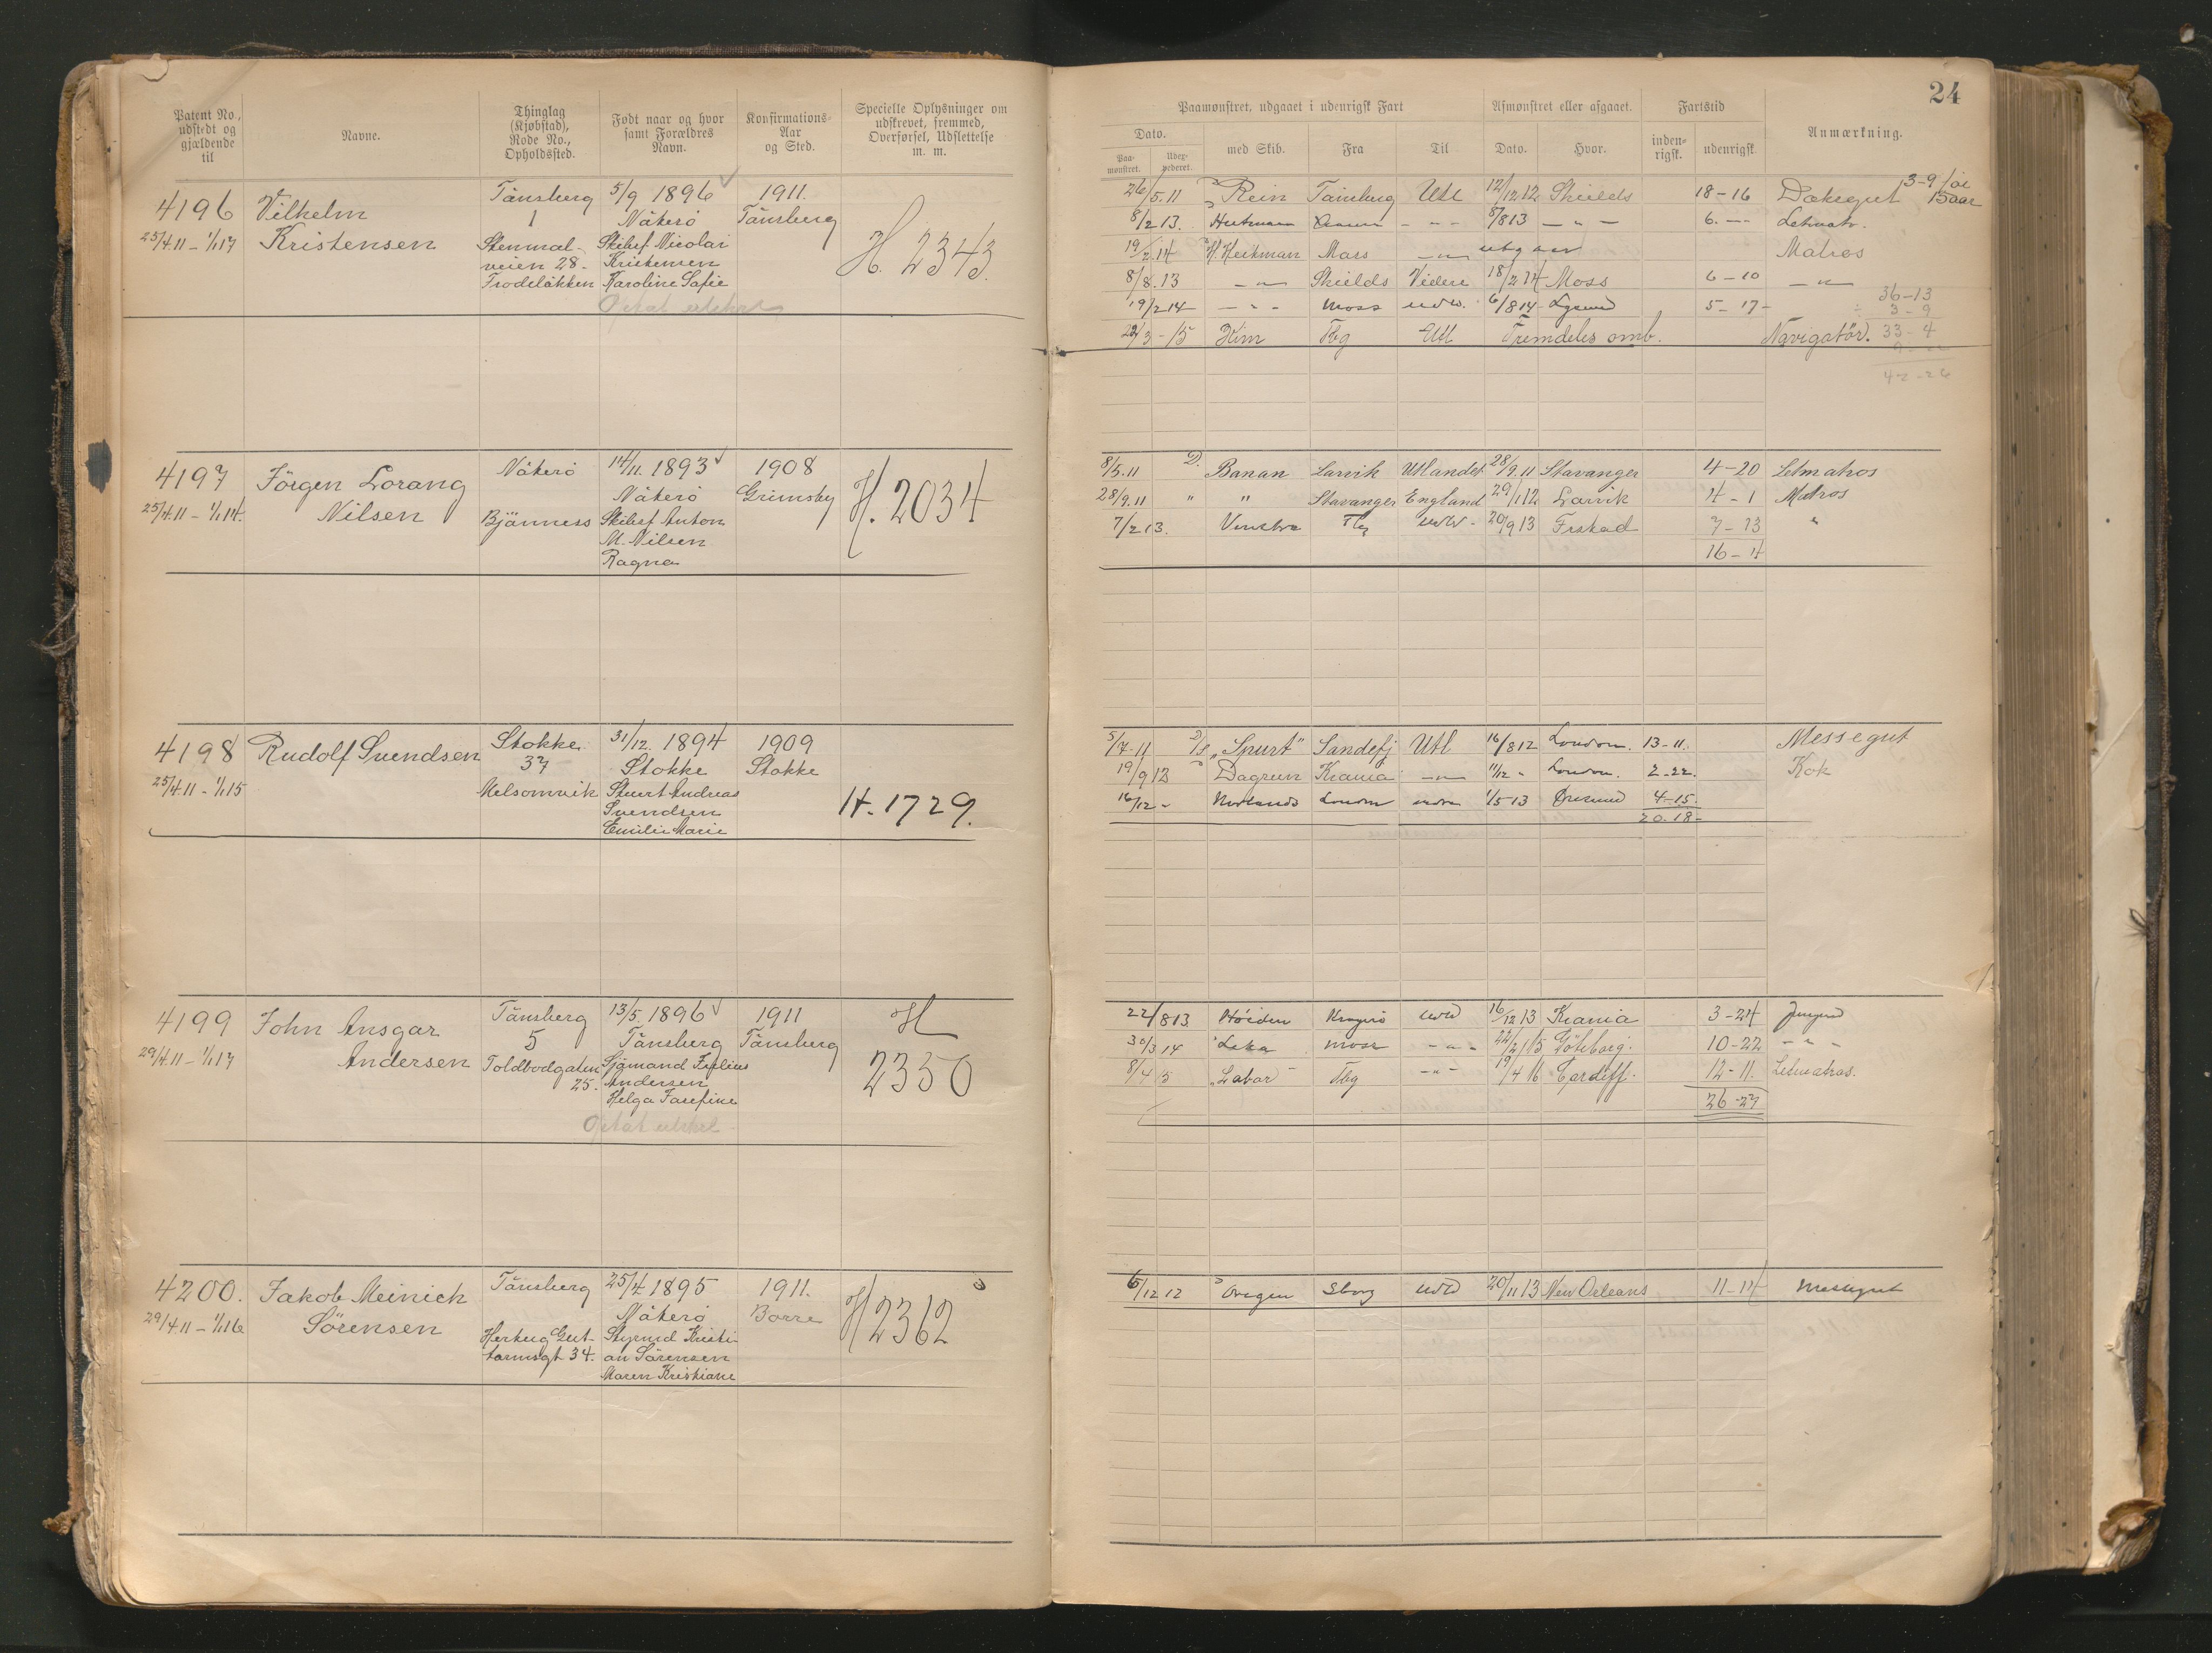 Patent No., udstedt og gjældende til
Navne.
Thinglag (Kjøbstad), Rode No., Opholdssted.
Født naar og hvor samt Forældres Navn.
Konfirmations-Aar og Sted.
Specielle Oplysninger om udskrevet, fremmed, Overførsel, Udslettelse m. m.
4196
25/4.11 – 1/1.17
Vilhelm
Kristensen
Tänsberg
1
Stenmal-
veien 28.
Frodeløkken
5/9 1896
Nøterø
Skibsf. Nicolai
Kristensen
Karoline Sofie
1911.
Tänsberg
H. 2343.
4197
25/4.11 – 1/1.14.
Jörgen Lorang
Nilsen
Nøterø
Bjänness
14/11. 1893
Nøterø
Skibsf Anton
M. Nilsen
Ragna
1908
Grimsby
H. 2034
4198
25/4.11 – 1/1.15
Rudolf Svendsen
Stokke
37
Melsomvik
31/12. 1894
Stokke
Stuert Andreas
Svendsen
Emilie Marie
1909
Stokke
H. 1729.
4199
29/4.11 – 1/1.17
John Ansgar
Andersen
Tänsberg
5
Toldbodgaten
25.
13/5. 1896
Tänsberg
Sjömand
Andersen
Helga Josefine
1911
Tänsberg
H
2350
4200.
29/4.11 – 1/1.16
Jakob Meinich
Sörensen
Tänsberg
Hertug Gut-
tormsgt 34.
25/4. 1895
Nøterø
Styrmd Kristi-
an Sörensen
Maren Kristiane
1911.
Borre
H 2362
24
Paamønstret, udgaaet i udenrigsk Fart
Afmønstret eller afgaaet.
Fartstid
Anmærkning.
Dato.
Paa-mønstret.
Udex-pederet.
med Skib.
Fra
Til
Dato.
Hvor.
inden-rigsk.
udenrigsk
26/5.11 Rein Tänsberg Utl 12/12.12 Shields 18-16 Däksgut
3-9
15 aar
8/2 13. - - - 8/8 13 - " - 6. -- Letmatr.
19/2.14 H. Heitman Moss Matros
8/8.13 - " - Shields Videre 18/2 14 Moss 6-10 - " -
36-13
19/2 14 - " - Moss udl. 6/8 14 5-17-
3-9
3-15 Kim Tbg Utl Fremdeles omb. Navigatör.
33-4
42-26
8/5.11 D. Banan Larvik Utlandet 28/9.11 Stavanger 4-20 Letmatros
28/9.11 " " Stavanger England 29/1 12 Larvik 4-1 Matros
7/2 13. Tbg udl. 20/9 13 Frskad 7-13 "
16-4
5/7-11 D/S "Spurt" Sandefj Utl 16/8 12 London. 13-11. Messegut
19/9 12 Dagrun Krania - " - 11/12 - London. 2-22. Kok
16/12 - London 1/5 13 4-15.
20.18-
22/8 13. Kragerö udld 16/12 13 Krania 3-24
30/3 14 Moss - " - 22/2/15 Göteborg. 10-22 - " -
8/4 15 "Labor" Tbg - " - 19/4 16 Cardiff. 12-11. Letmatros.
26-27
6/12 12 Oregon Sborg udld 20/11 13 New Orleans 11-14 Messegut